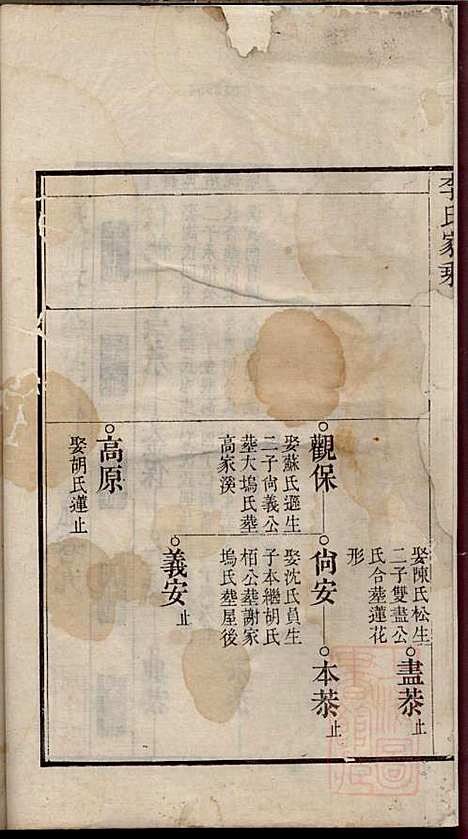 李氏家乘
娶陳氏松生
二子雙盡公
氏合塟蓮花
形
盡恭止
觀保
娶蘇氏遜生
二子尙義公
塟大塢氏塟
高家溪
尙安
娶沈氏員生
子本繼胡氏
栢公塟謝家
塢氏塟屋後
本恭止
義安止
高原
娶胡氏蓮止